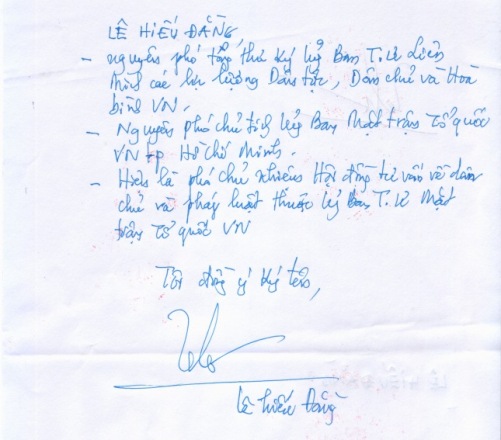 LÊ HIẾU ĐẰNG
- nguyên phó tổng thư ký Uỷ Ban T.Ư Liên
Minh các lực lượng Dân tộc, Dân chủ và Hoà
bình VN.
- Nguyên phó chủ tịch Uỷ Ban Mặt trận Tổ quốc
VN tp Hồ Chí Minh.
- Hiện là phó chủ nhiệm Hội đồng tư vấn về dân
chủ và pháp luật thuộc Uỷ ban T.Ư Mặt
trận Tổ quốc VN
Tôi đồng ý ký tên,
Lê Hiếu Đằng